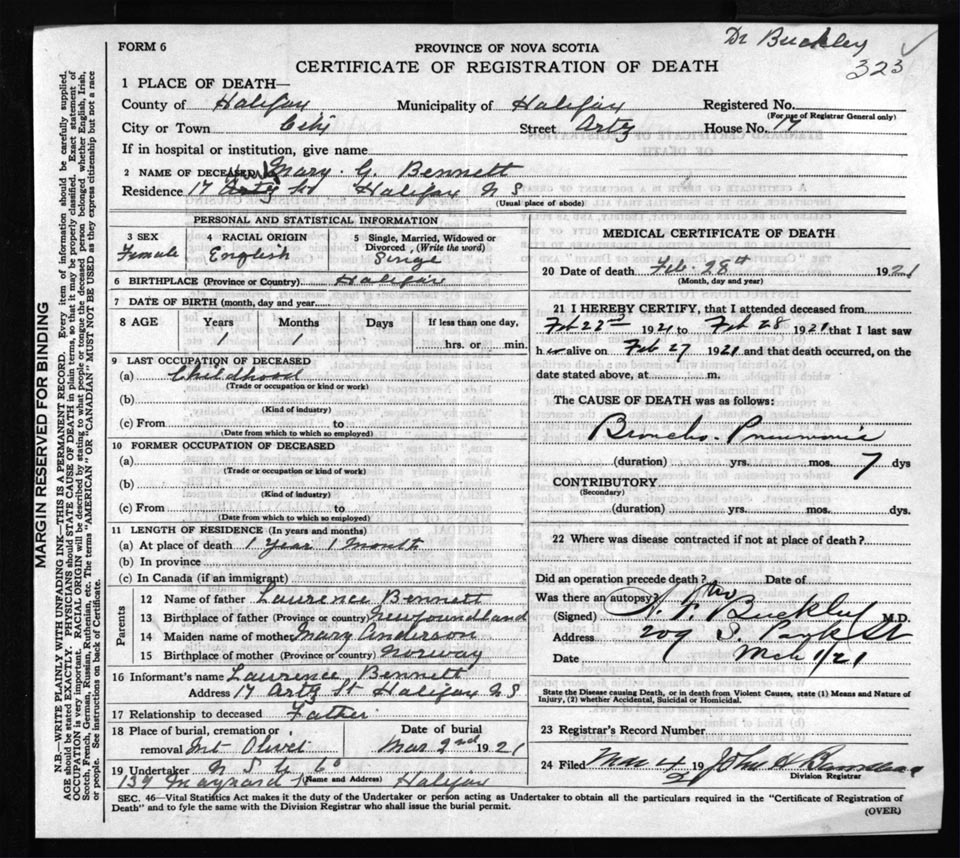 Dr Buckley
323
FORM 6
PROVINCE OF NOVA SCOTIA
CERTIFICATE OF REGISTRATION OF DEATH
1 PLACE OF DEATH—
County of Halifax Municipality of Halifax Registered No.
(For use of Registrar General only)
City or Town City Street Artz House No. 17
If in hospital or institution, give name
2 NAME OF DECEASED Mary G. Bennett
Residence 17 Artz St Halifax N S
(Usual place of abode)
PERSONAL AND STATISTICAL INFORMATION
3 SEX 4 RACIAL ORIGIN 5 Single, Married, Widowed or Divorced (Write the word)
Female English Singe
6 BIRTHPLACE (Province or Country) Halifax
7 DATE OF BIRTH (month, day and year)
8 AGE Years Months Days If less than one day,
1 1 hrs. or min.
9 LAST OCCUPATION OF DECEASED
(a) Childhood
(Trade or occupation or kind or work)
(b)
(Kind of industry)
(c) From to
(Date from which to which so employed)
10 FORMER OCCUPATION OF DECEASED
(a)
(Trade or occupation or kind of work)
(b)
(Kind of industry)
(c) From to
(Date from which to which so employed)
11 LENGTH OF RESIDENCE (In years and months)
(a) At place of death 1 Year 1 Month
(b) In province
(c) In Canada (if an immigrant)
Parents
12 Name of father Laurence Bennett
13 Birthplace of father (Province or country) Newfoundland
14 Maiden name of mother Mary Anderson
15 Birthplace of mother (Province or country) Norway
16 Informant's name Laurence Bennett
Address 17 Artz St Halifax N S
17 Relationship to deceased Father
18 Place of burial, cremation or Date of burial
removal Mt Olivet Mar 2nd 1921
19 Undertaker N S U Co
(Name and Address)
139 Maynard St Halifax
MEDICAL CERTIFICATE OF DEATH
20 Date of death Feb. 28th 1921
(Month, day and year)
21 I HEREBY CERTIFY, that I attended deceased from
Feb 22nd 1921 to Feb 28 1921 that I last saw
her alive on Feb 27 1921 and that death occurred, on the
date stated above, at m.
The CAUSE OF DEATH was as follows:
Broncho-Pneumonia
(duration) yrs. mos. 7 dys
CONTRIBUTORY
(Secondary)
(duration) yrs. mos. dys
22 Where was disease contracted if not at place of death?
Did an operation precede death? Date of
Was there an autopsy? No
(Signed) Buckley M.D.
Address 209 S. Park St
Date Mch 1/21
State the Disease causing Death, or in death from Violent Causes, state (1) Means and Nature of
Injury, (2) whether Accidental, Suicidal or Homicidal.
23 Registrar's Record Number
24 Filed Mar 4 19 John
Division Registrar
SEC. 46—Vital Statistics Act makes it the duty of the Undertaker or person acting as Undertaker to obtain all the particulars required in the "Certificate of Registration of
Death" and to fyle the same with the Division Registrar who shall issue the burial permit.
(OVER)
MARGIN RESERVED FOR BINDING
N.B.—WRITE PLAINLY WITH UNFADING INK—THIS IS A PERMANENT RECORD. Every item of information should be carefully supplied.
AGE should be stated EXACTLY. PHYSICIANS should STATE CAUSE OF DEATH in plain terms, so that it may be properly classified. Exact statement of
OCCUPATION is very important. RACIAL ORIGIN will be described by stating to what people or tongue the deceased person belonged whether English, Irish,
Scotch, French, German, Russian, Ruthenian, etc. The terms "AMERICAN" OR "CANADIAN" MUST NOT BE USED as they express citizenship but not a race
or people. See instructions on back of Certificate.